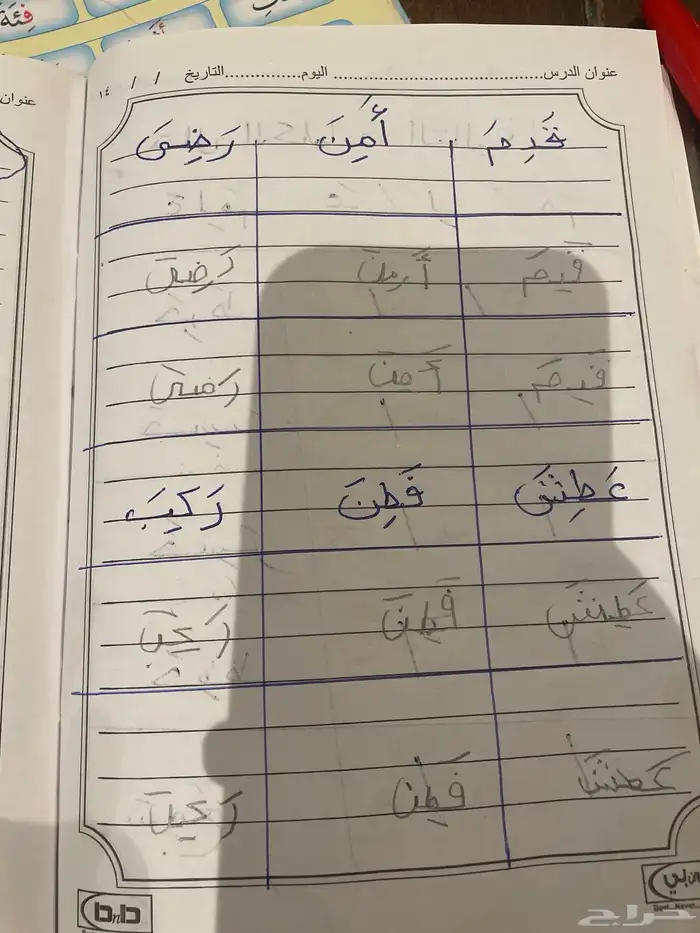 فِئَة
عنوان الدرس............................ اليوم..............التاريخ / / ١٤
عنوان
قَدِمَ أَمِنَ رَضِيَ
قَدِمَ أَمِنَ رَضِيَ
قَدِمَ أَمِنَ رَضِيَ
عَطِشَ فَطِنَ رَكِبَ
عَطِشَ فَطِنَ رَكِبَ
عَطِشَ فَطِنَ رَكِبَ
bnb
حراج